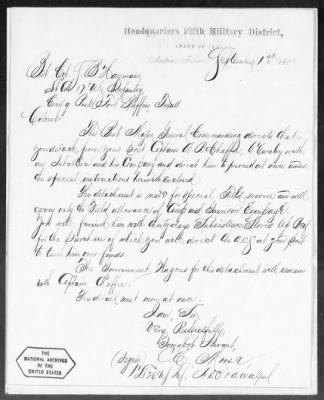 Headquarters Fifth Military District,
STATE OF TEXAS
Austin, Texas, 1st
Bvt Col J. B.
Lt Col 17" U.S. Infantry
Comd'g Post Fort Texas
Colonel:
The Bvt Major General Commanding directs that
you detach from your Post Captain A. R. Chaffee, 6" Cavalry with
and his Company and direct him to proceed at once under
the special instructions herewith enclosed.
The detachment is made for special field service and will
carry only the field allowance of Camp and Garrison Equipage.
You will furnish him with days Subsistence Stores
for the purchase of which you will direct the A.C.S. at your Post
to turn him over funds.
The Government Wagons for this detachment will remain
with Captain Chaffee.
The detail must move at once.
I am, Sir,
Very Respectfully
Your Obdt Servant
(Signed) C. E. Morse
1" Lt 26" U.S. Inf.
THE
NATIONAL ARCHIVES
OF THE
UNITED STATES